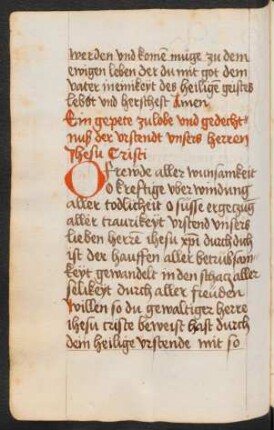 werden vnd komē muge zu dem
ewigen leben der du mit got dem
vater in einikeyt des heiligē geistes
lebst vnd herschest Amen
Ein gepete zu lobe vnd gedecht-
nuß der vrstendt vnsers herren
Jhesu Cristi
O frewde aller wunsamkeit
O krefftige vberwindung
aller todlicheit O süsse ergeczung
aller traurikeyt vrstend vnsers
lieben herrē ihesu xp̄i durch dich
ist der hauffen aller betrubsam-
keyt gewandelt in den schacz aller
selikeyt durch aller freuden
willen so du gewaltiger herre
ihesu criste beweist hast durch
dem heilige vrstende mit so